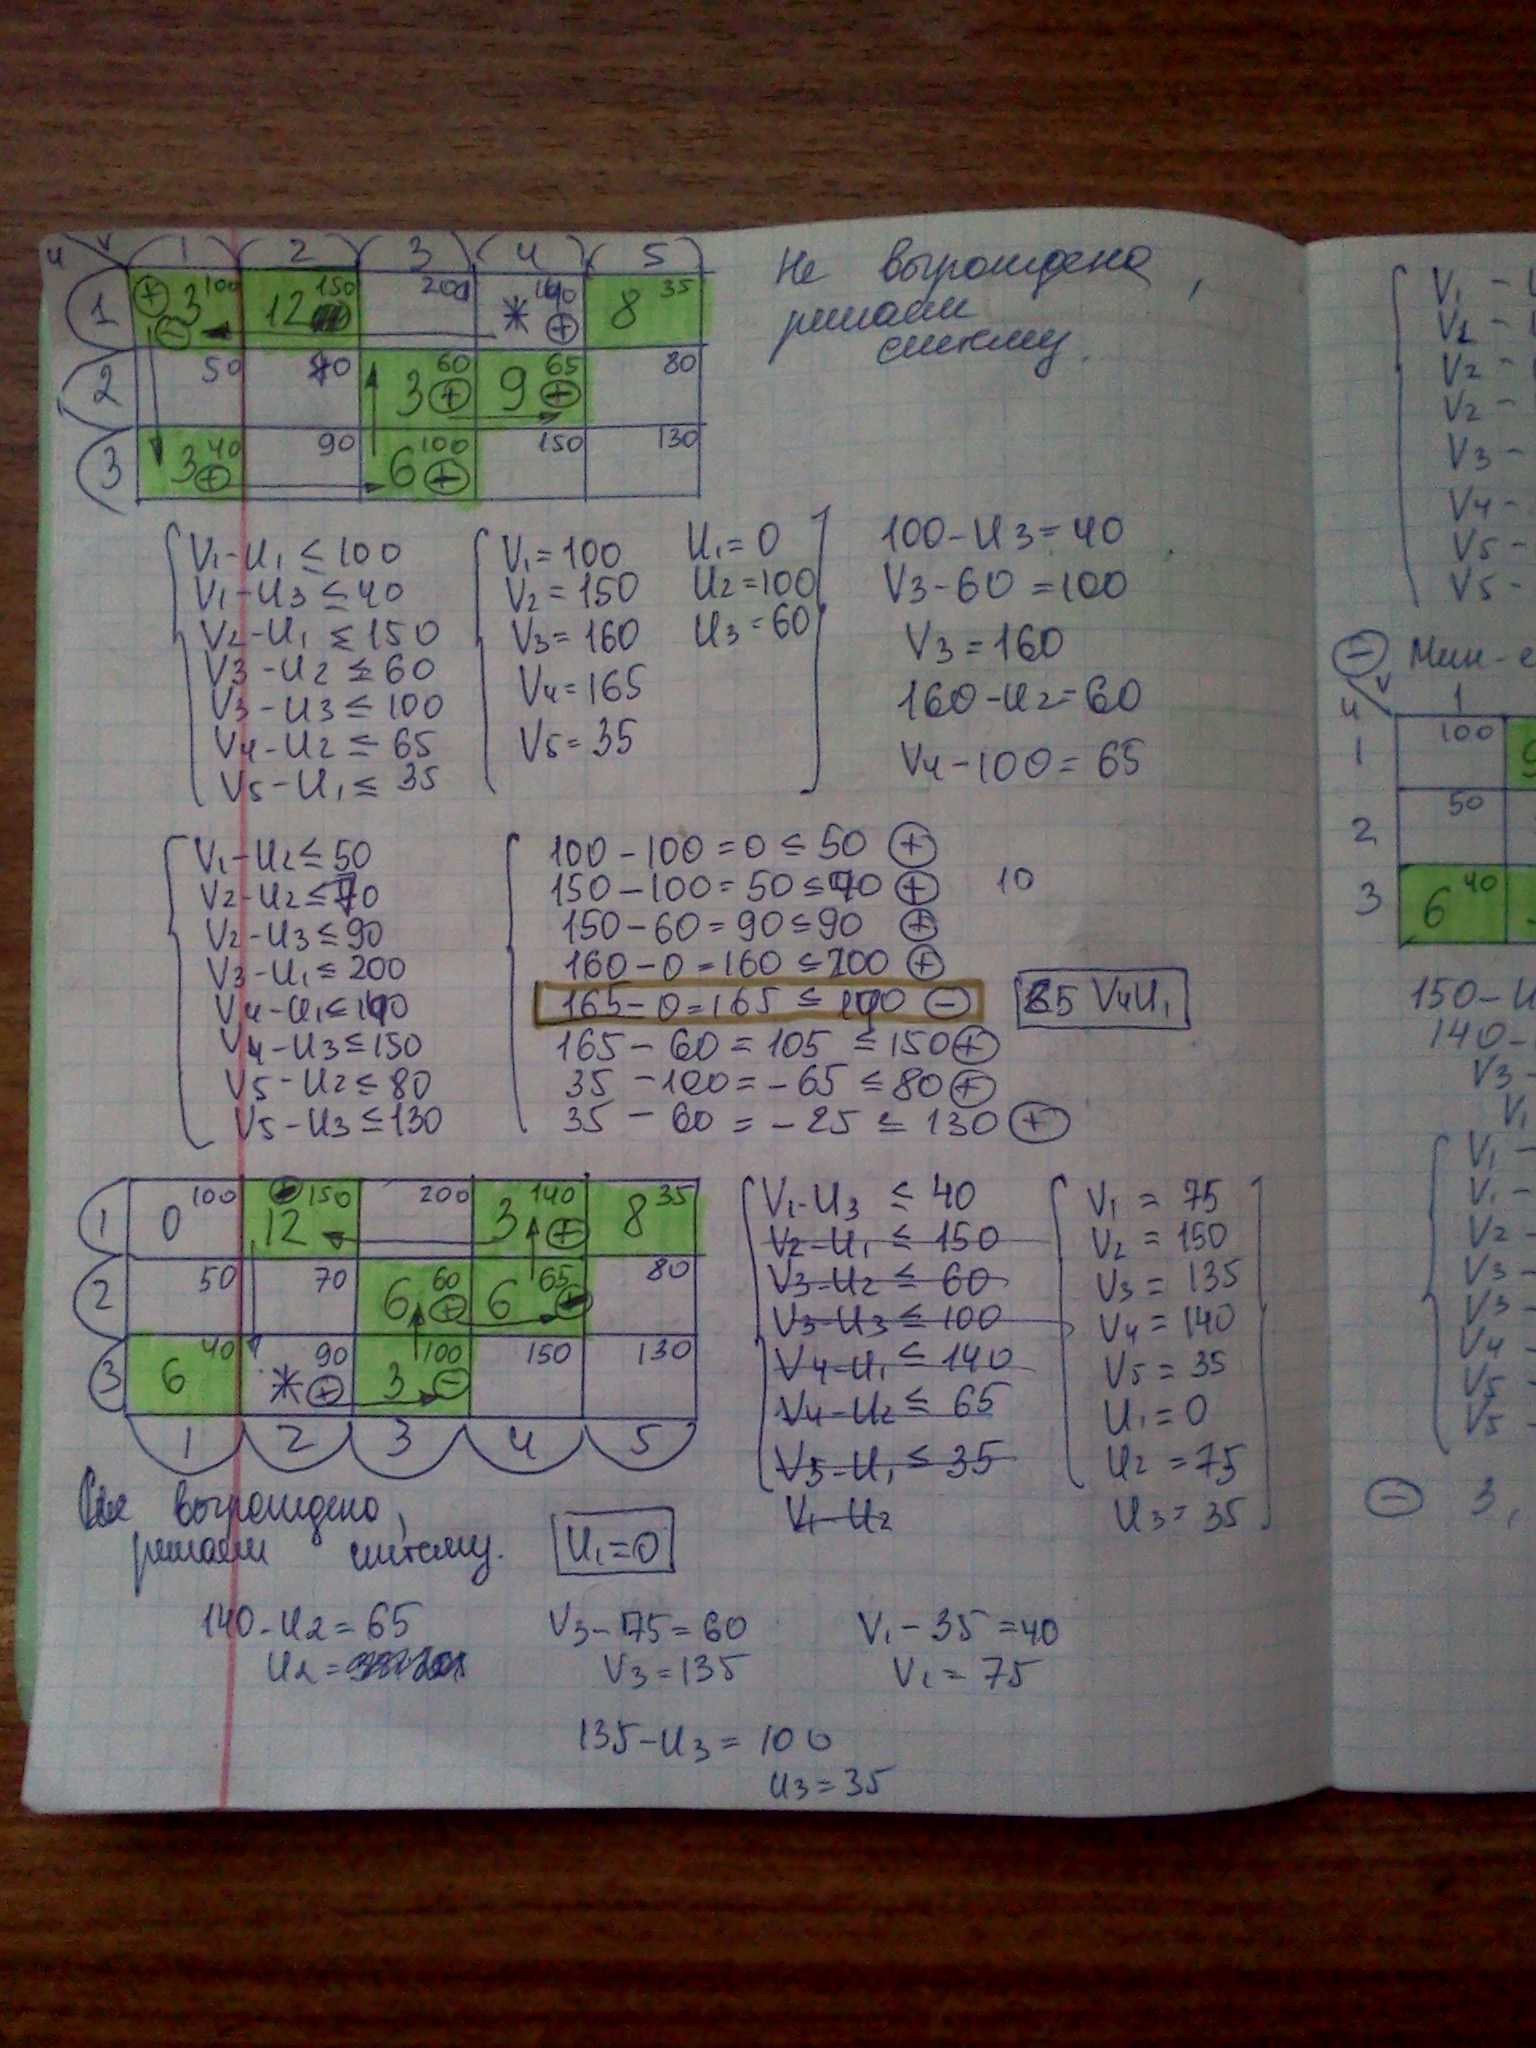 u v 1 2 3 4 5
1 3 100 12 150 200 * 140 8 35
2 50 70 3 60 9 65 80
3 3 40 90 6 100 150 130
Не вырождена,
решаем
систему.
V1-U1 ≤ 100
V1-U3 ≤ 40
V2-U1 ≤ 150
V3-U2 ≤ 60
V3-U3 ≤ 100
V4-U2 ≤ 65
V5-U1 ≤ 35
V1=100
V2=150
V3=160
V4=165
V5=35
U1=0
U2=100
U3=60
100-U3=40
V3-60=100
V3=160
160-U2=60
V4-100=65
V1-U2≤50
V2-U2≤70
V2-U3≤90
V3-U1≤200
V4-U1≤140
V4-U3≤150
V5-U2≤80
V5-U3≤130
100-100=0≤50 +
150-100=50≤70 + 10
150-60=90≤90 +
160-0=160≤200 +
165-0=165≤140 -
25 V4U1
165-60=105≤150 +
35-100=-65≤80 +
35-60=-25≤130 +
1 0 100 12 150 200 3 140 + 8 35
2 50 70 6 60 + 6 65 80
3 6 40 * 90 + 3 100 - 150 130
1 2 3 4 5
V1-U3 ≤ 40
V2-U1 ≤ 150
V3-U2 ≤ 60
V3-U3 ≤ 100
V4-U1 ≤ 140
V4-U2 ≤ 65
V5-U1 ≤ 35
V1-U2
V1 = 75
V2 = 150
V3 = 135
V4 = 140
V5 = 35
U1 = 0
U2 = 75
U3 = 35
вырождено,
решаем систему.
U1=0
140-U2=65
U2=
V3-75=60
V3=135
V1-35=40
V1=75
135-U3=100
U3=35
V1 -
V2 -
V2 -
V2 -
V3 -
V4 -
V5 -
V5 -
- Мин-
u v 1
1 100
2 50
3 6 40
150-U
140-
V3-
V1
V1 -
V1 -
V2 -
V3 -
V3 -
V4 -
V5 -
V5 -
- 3,